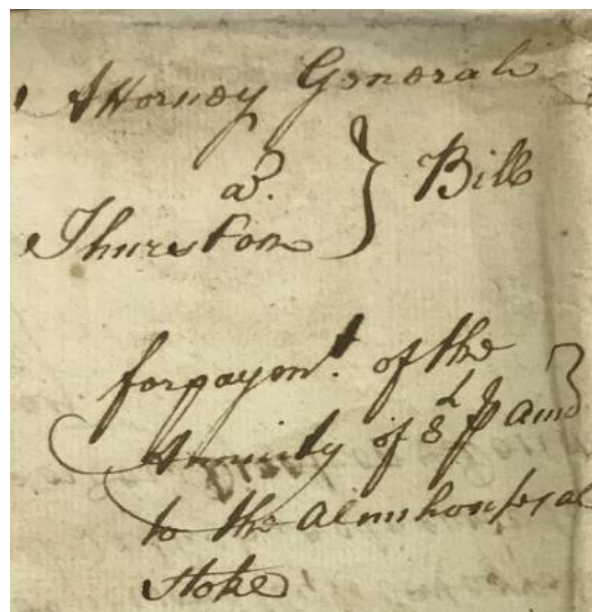 Attorney General
a}. } Bill
Thurston
for paym.t of the
Annuity of 8L P ann
to the Almshouses at
Stoke